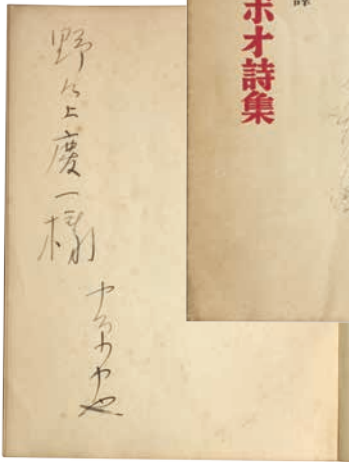 ボオ詩集
野々上慶一様
中原中也